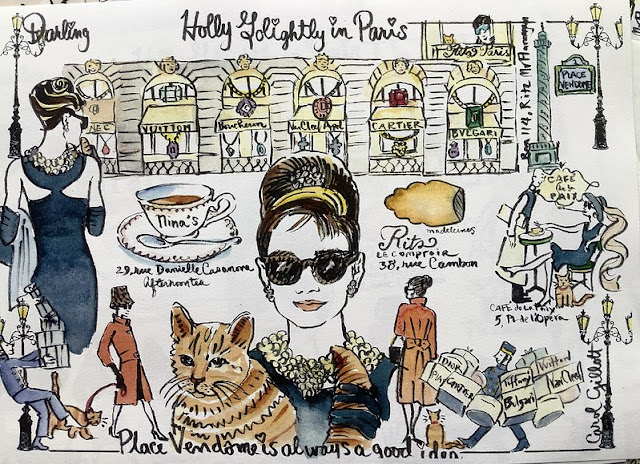 Darling
Holly Golightly in Paris
Ritz Paris
PLACE
VENDOME
VUITTON
Boucheron
Van Cleef Arpel
CARTIER
BVLGARI
CAFÉ
de la
PAIX
Nina's
29, rue Danielle Casanova
Afternoon tea
madeleines
Ritz
LE COMPTOIR
38, rue Cambon
CAFÉ de la Paix
5, Pl. de l'Opera
DIOR
CARTIER
Tiffany
Bvlgari
Vuitton
Van Cleef
Carol Gillott
Place Vendôme is always a good idea